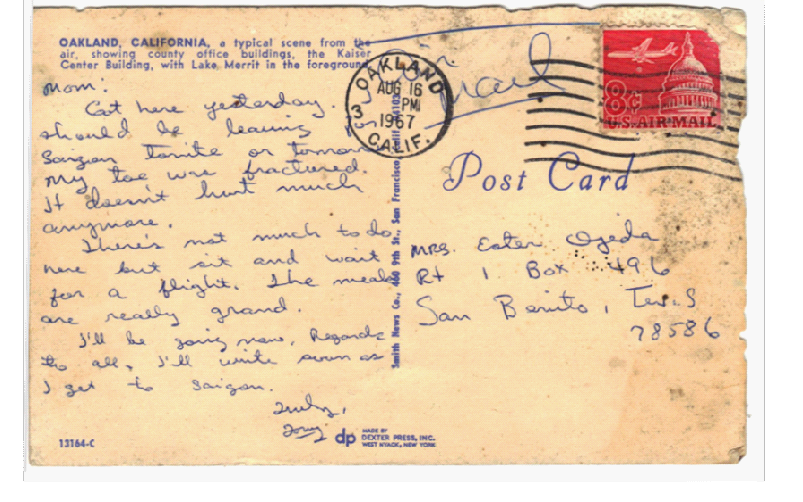 OAKLAND, CALIFORNIA, a typical scene from the
air, showing county office buildings, the Kaiser
Center Building, with Lake Merrit in the foreground
Mom:
Got here yesterday.
should be leaving for
Saigon tonite or tomorr
My toe was fractured.
It doesn't hurt much
anymore.
There's not much to do
here but sit and wait
for a flight. The meals
are really grand.
I'll be going now, Regards
to all, I'll write soon as
I get to Saigon.
Truly,
Tony
13164-C
dp
MADE BY
DEXTER PRESS, INC.
WEST NYACK, NEW YORK
Smith News Co., 460 9th St., San Francisco, Calif.
Air
Mail
OAKLAND
AUG 16
PM
3
1967
CALIF.
8c
U.S. AIR MAIL
Post Card
MRS Ester Ojeda
Rt 1 Box 496
San Benito, Texas
78586